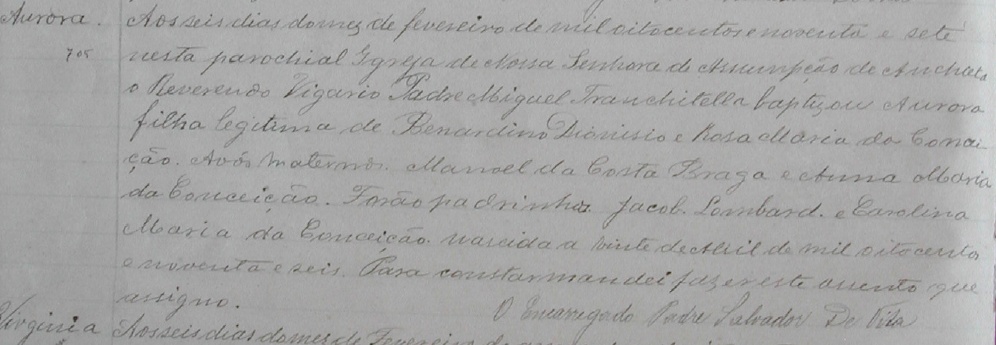 Aurora. Aos seis dias do mez de fevereiro de mil oitocentos e noventa e sete
705 nesta parochial Igreja de Nossa Senhora de Assumpção de Anchieta
o Reverendo Vigario Padre Miguel Tranchitella baptizou Aurora
filha legitima de Benardino Dionisio e Rosa Maria da Concei-
ção. Avós maternos. Manoel da Costa Braga e Anna Maria
da Conceição. Forão padrinhos Jacob Lombard. e Carolina
Maria da Conceição. nascida a vinte de Abril de mil oitocentos
e noventa e seis. Para constar mandei fazer este assento que
assigno.
O Encarregado Padre Salvador De Vita
Virginia Aos seis dias do mez de Fevereiro de